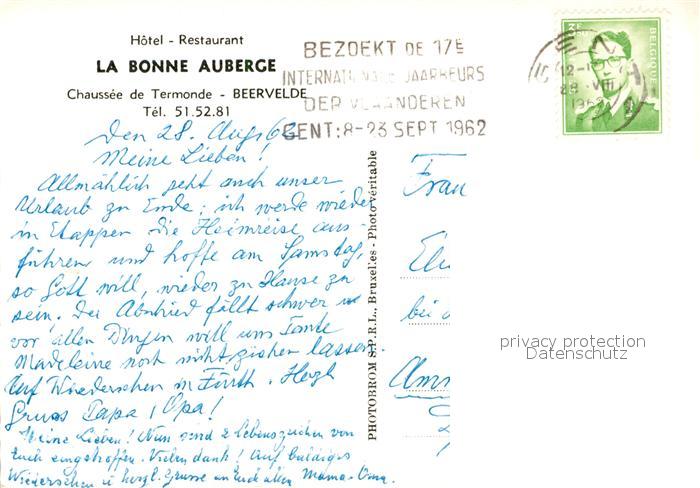 Hôtel - Restaurant
LA BONNE AUBERGE
Chaussée de Termonde - BEERVELDE
Tél. 51.52.81
BEZOEKT DE 17E
INTERNATIONALE JAARBEURS
DER VLAANDEREN
GENT: 8-23 SEPT 1962
BELGIQUE
Den 28. Aug. 62
Meine Lieben!
Allmählich geht auch unser
Urlaub zu Ende; ich werde wieder
in Etappen die Heimreise aus-
führen und hoffe am Samstag,
so Gott will, wieder zu Hause zu
sein. Der Abschied fällt schwer u
vor allen Dingen will uns Tante
Madeleine noch nicht ziehen lassen.
Auf Wiedersehen in Fürth. Herzl
Gruss Papa, Opa!
Meine Lieben! Nun sind 2 Lebenszeichen von
Euch eingetroffen. Vielen Dank! Auf baldiges
Wiedersehen u herzl. Grüsse an Euch alle, Mama-Oma.
PHOTOBROM S.P.R.L., Bruxelles - Photo véritable
Frau
bei
privacy protection
Datenschutz